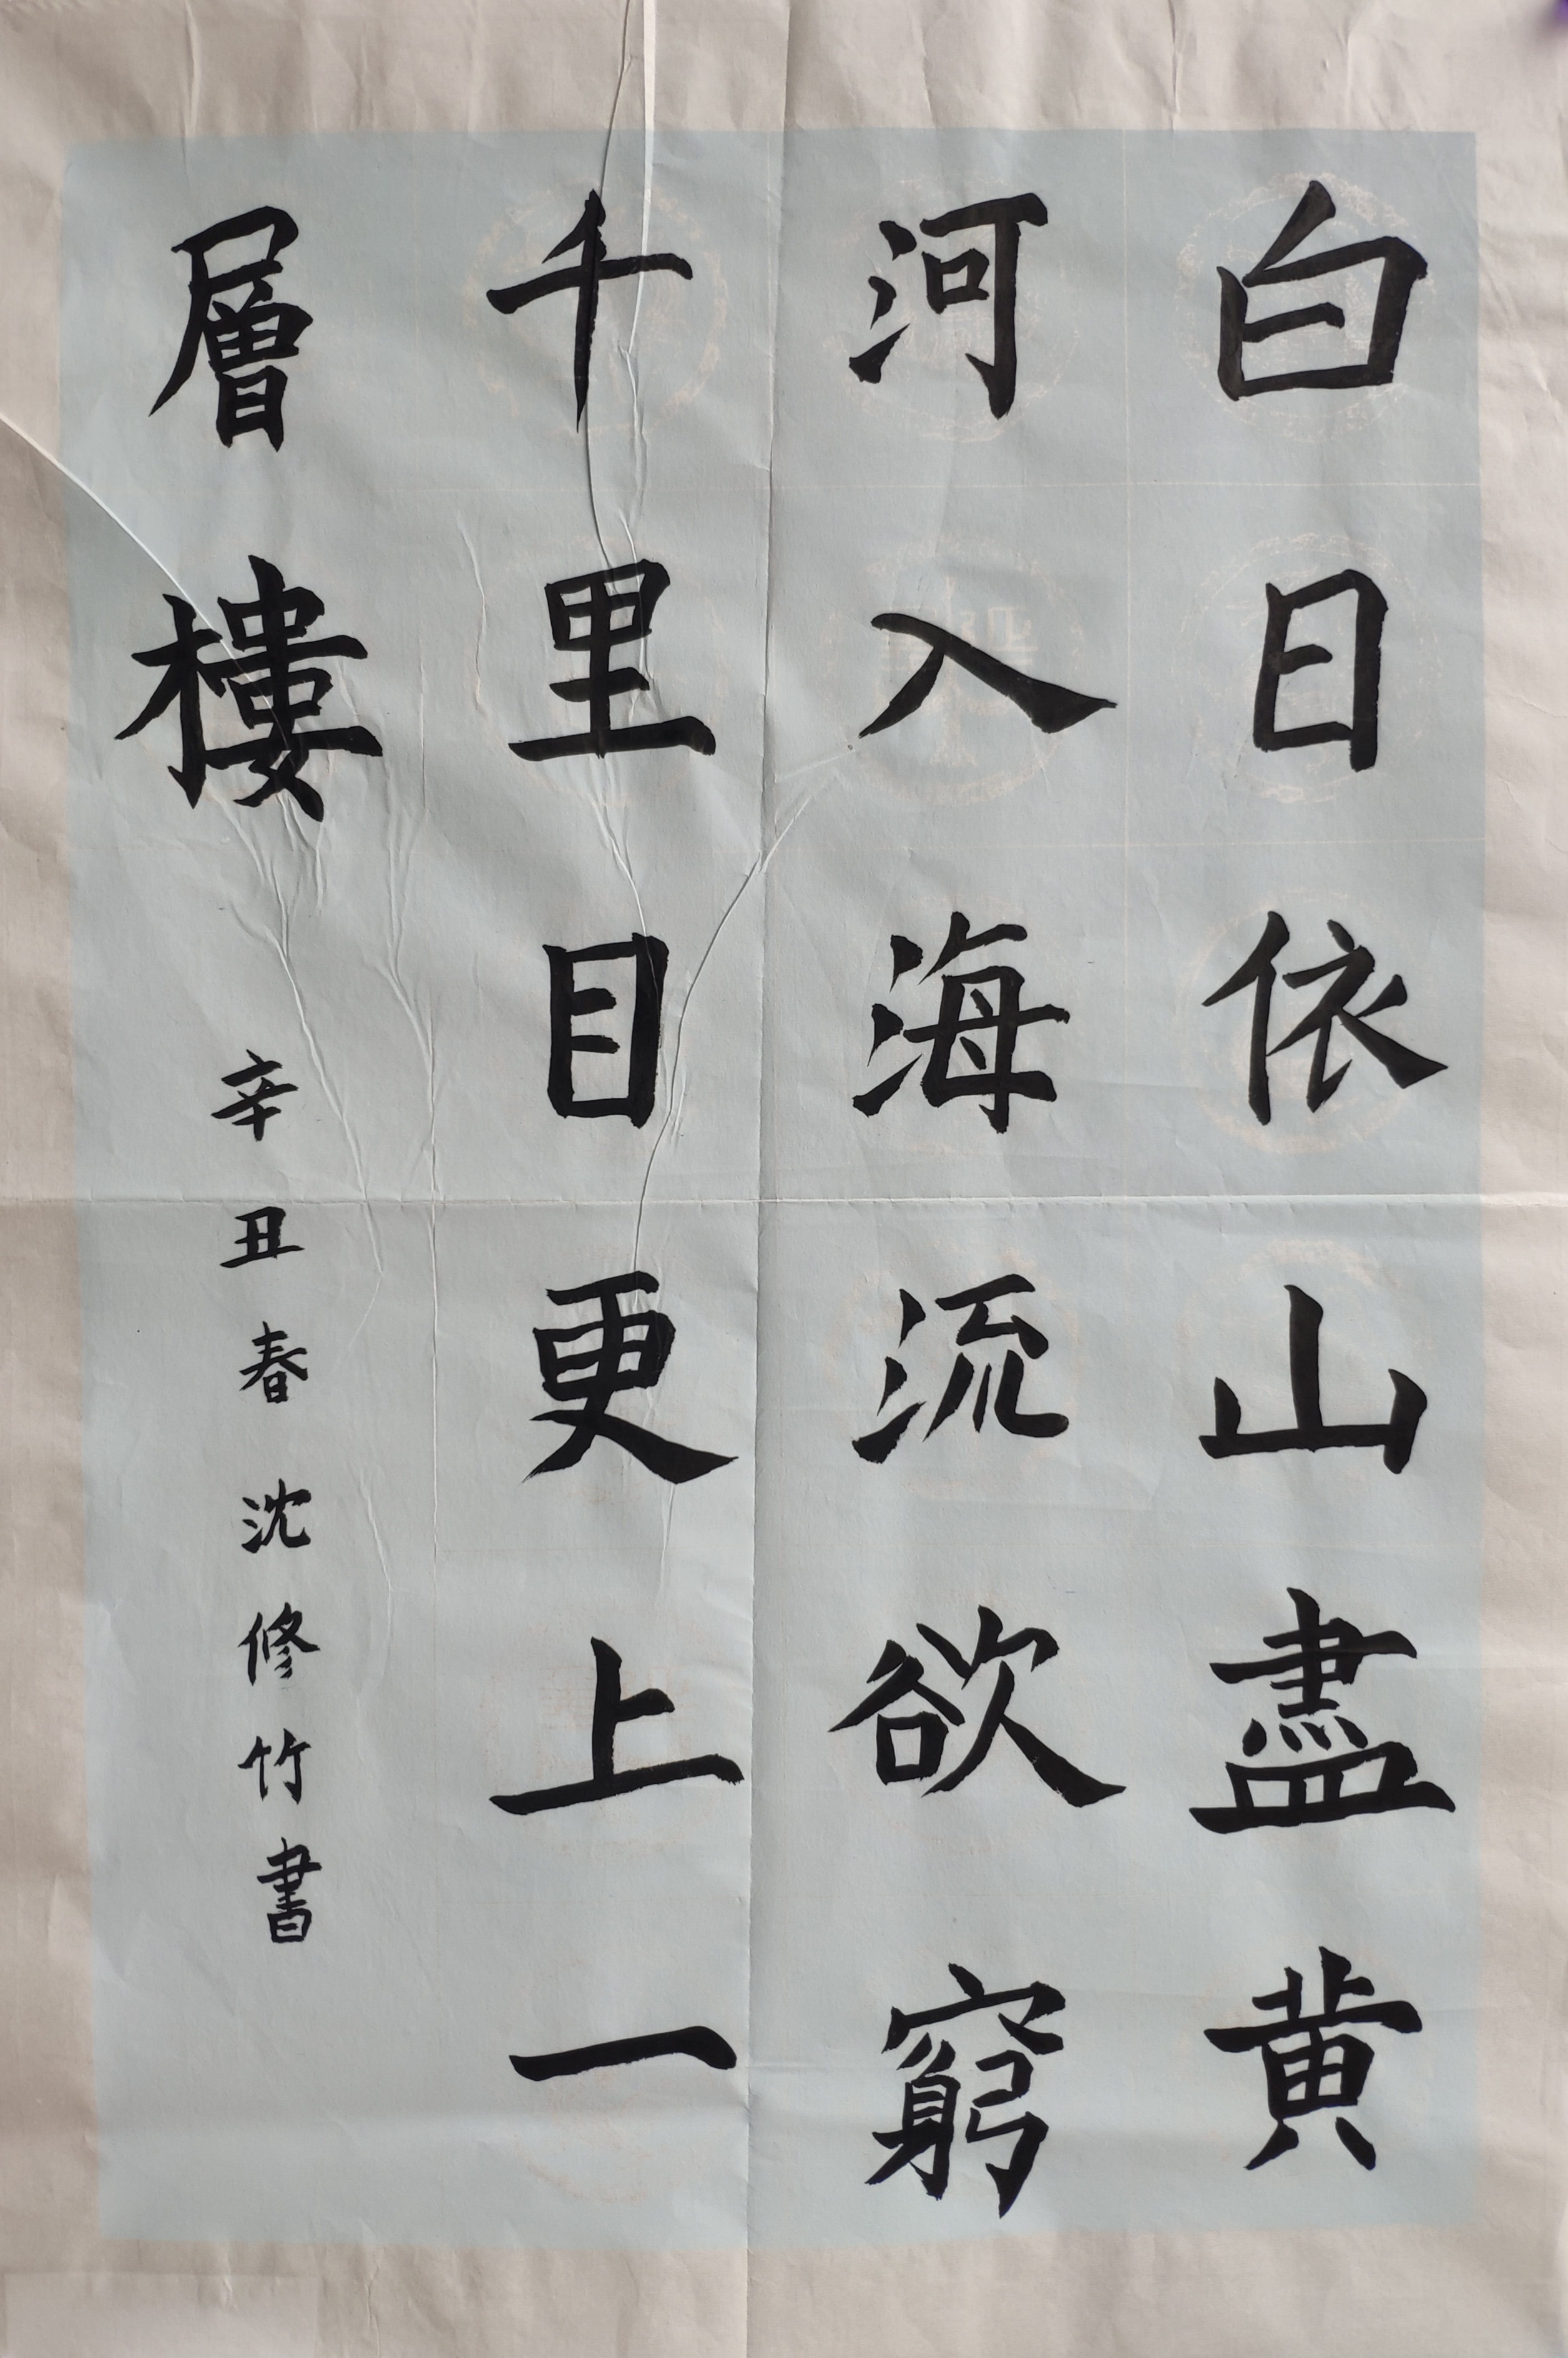 白日依山盡黄
河入海流欲窮
千里目更上一
層樓
辛丑春沈修竹書